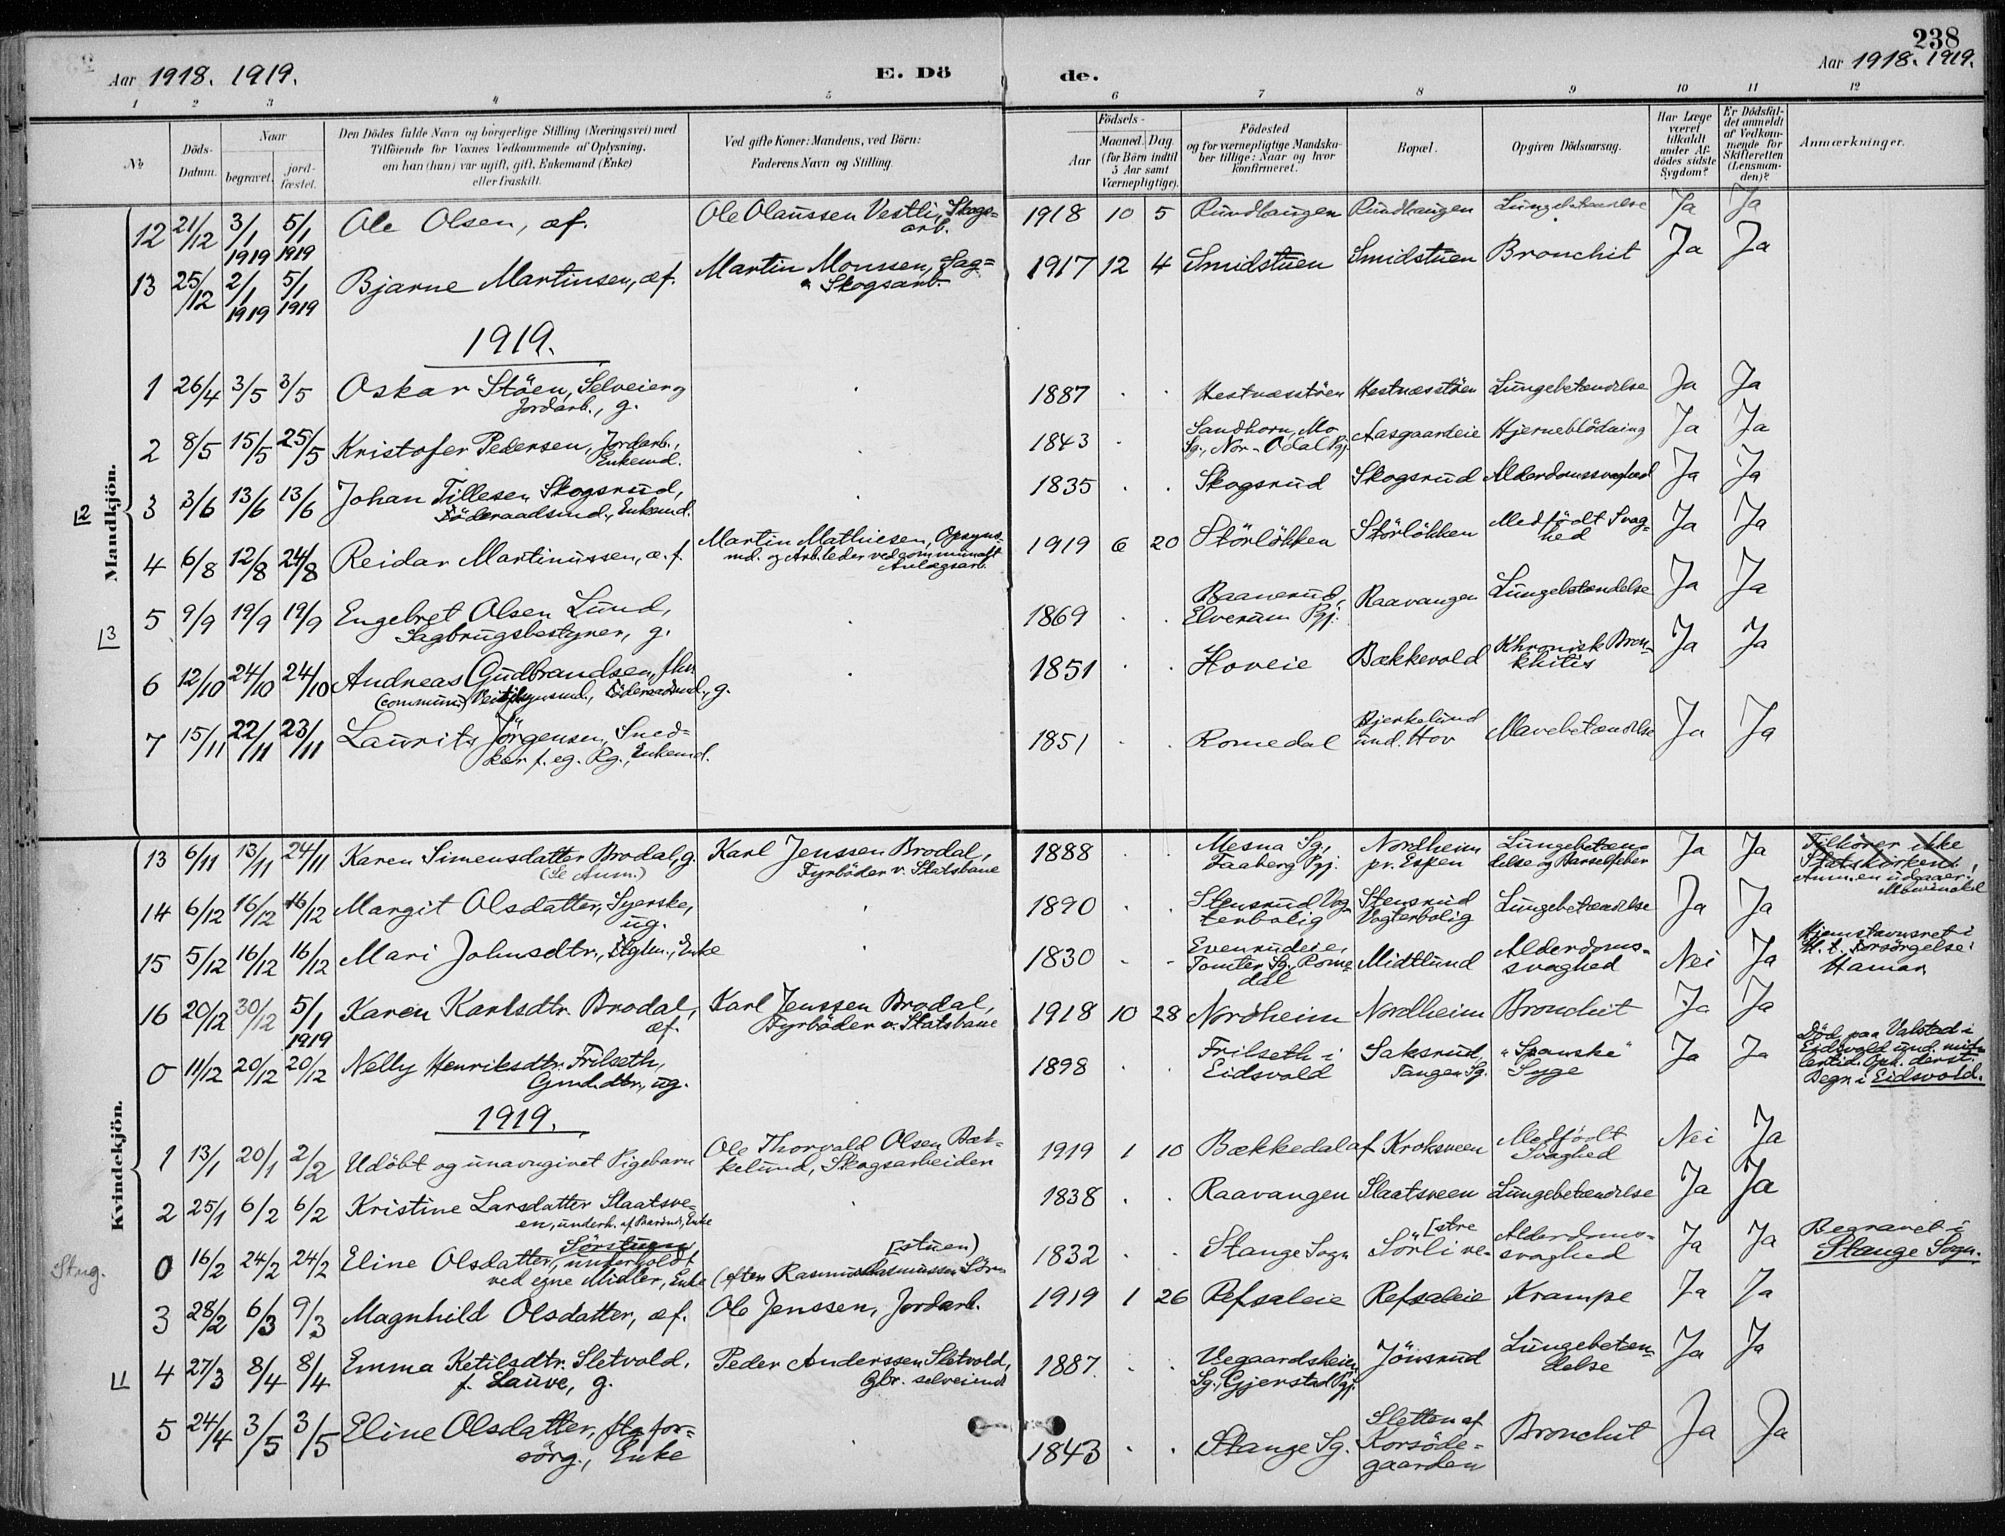 238
Aar 1918. 1919.
E. Dö
de.
Aar 1918. 1919.
1 2 3 4 5 6 7 8 9 10 11 12
No
Döds-
Datum.
Naar
begravet.
jord-
fæstet.
Den Dödes fulde Navn og borgerlige Stilling (Næringsvei) med
Tilföiende for Voxnes Vedkommende af Oplysning,
om han (hun) var ugift, gift, Enkemand (Enke)
eller fraskilt.
Ved gifte Koner: Mandens, ved Börn:
Faderens Navn og Stilling.
Födsels-
Aar
Maaned. Dag.
(for Börn indtil
5 Aar samt
Værnepligtige).
Födested
og for værnepligtige Mandska-
ber tillige: Naar og hvor
konfirmeret.
Bopæl.
Opgiven Dödsaarsag.
Har Læge
været
tilkaldt
under Af-
dödes sidste
Sygdom?
Er Dödsfal-
det anmeldt
af Vedkom-
mende for
Skifteretten
(Lensman-
den)?
Anmærkninger.
Mandkjön.
12 21/12 3/1 1919 5/1 1919 Ole Olsen, æf. Ole Olaussen Vestli, Skogs-
arb. 1918 10 5 Rundhaugen Rundhaugen Lungebetændelse Ja Ja
13 25/12 2/1 1919 5/1 1919 Bjarne Martinsen, æf. Martin Monssen, Sag-
& Skogsarb. 1917 12 4 Smidstuen Smidstuen Bronchit Ja Ja
1919.
1 26/4 3/5 3/5 Oskar Stöen, Selveier og
Jordarb., g. 1887 Hestnæsstöen Hestnæsstöen Lungebetændelse Ja Ja
2 8/5 15/5 25/5 Kristofer Pedersen, Jordarb.,
Enkemd. 1843 Sandhorn, Mo
Sg., Nor-Odal Pgj. Aasgaardeie Hjerneblödning Ja Ja
3 3/6 13/6 13/6 Johan Tillesen Skogsrud,
Föderaadsmd., Enkemd. 1835 Skogsrud Skogsrud Alderdomssvaghed Ja Ja
4 6/8 12/8 24/8 Reidar Martinussen, æ. f. Martin Mathiesen, Opsyns-
md. og Arb.leder ved communalt
Anlægsarb. 1919 6 20 Störlökken Störlökken Medfödt Svag-
hed Ja Ja
5 9/9 19/9 19/9 Engebret Olsen Lund,
Sagbrugsbestyrer, g. 1869 Baanerud,
Elverum Pgj. Raavangen Lungebetændelse Ja Ja
6 12/10 24/10 24/10 Andreas Gudbrandsen, fhv.
(commun.) Veiopsynsmd., Föderaadsmd., g. 1851 Hoveie Bækkevold Khronisk Bron-
khitis Ja Ja
7 15/11 22/11 23/11 Laurits Jörgensen, Sned-
ker f. eg. Rg., Enkemd. 1851 Romedal Bjerkelund
und. Hov Mavebetændelse Ja Ja
Kvindekjön.
13 6/11 13/11 24/11 Karen Simensdatter Brodal, g.
(Se Anm.) Karl Jenssen Brodal,
Fyrböder v. Statsbane 1888 Mesna Sg.,
Faaberg Pgj. Nordheim
pr. Espen Lungebetæn-
delse og Barselfeber Ja Ja Tilhörer ikke
Statskirken.
Anm.en udgaaer!
14 6/12 16/12 16/12 Margit Olsdatter, Syerske,
ug. 1890 Stensrud Vog-
terbolig Stensrud
Vogterbolig Lungebetændelse Ja Ja
15 5/12 16/12 16/12 Mari Johnsdtr., Enke 1830 Evenrudeie,
Tomter Sg., Rome-
dal Midtlund Alderdoms-
svaghed Nei Ja Hjemstavnsret i
H. t. Forsörgelse:
Hamar
16 20/12 30/12 5/1 1919 Karen Karlsdtr. Brodal,
æf. Karl Jenssen Brodal,
Fyrböder v. Statsbane 1918 10 28 Nordheim Nordheim Bronchit Ja Ja
0 11/12 20/12 20/12 Nelly Henriksdtr. Frilseth,
Gmd.dtr., ug. 1898 Frilseth i
Eidsvold Saksrud,
Tangen Sg. "Spanske"
Syge Ja Ja Död paa Valstad i
Eidsvold und. mid-
lertid. Oph. derst.
Begr. i Eidsvold.
1919.
1 13/1 20/1 2/2 Udöbt og unavngivet Pigebarn Ole Thorvald Olsen Bæk-
kelund, Skogsarbeider 1919 1 10 Bækkedal af Kroksveen Medfödt
Svaghed Nei Ja
2 25/1 6/2 6/2 Kristine Larsdatter Slaatsve-
en, underh. af Börn, Enke 1838 Raavangen Slaatsveen Lungebetændelse Ja Ja
Stng. 0 16/2 24/2 24/2 Eline Olsdatter, Sörstuen, underholdt
ved egne Midler, Enke (efter Rasmus Rasmussen Sör-
[stuen) 1832 Stange Sogn Sörli ve-
[stre Alderdoms-
svaghed Ja Ja Begravet i
Stange Sogn.
3 28/2 6/3 9/3 Magnhild Olsdatter, æf. Ole Jenssen, Jordarb. 1919 1 26 Refsaleie Refsaleie Krampe Ja Ja
4 27/3 8/4 8/4 Emma Ketilsdtr. Sletvold,
f. Lauve, g. Peder Anderssen Sletvold,
Gbr. selveiende 1887 Vegaardsheien
Sg., Gjerstad Pgj. Jönsrud Lungebetæn-
delse Ja Ja
5 24/4 3/5 3/5 Eline Olsdatter, ftgfor-
sörg., Enke 1843 Stange Sg. Sletten af
Korsöde-
gaarden Bronchit Ja Ja